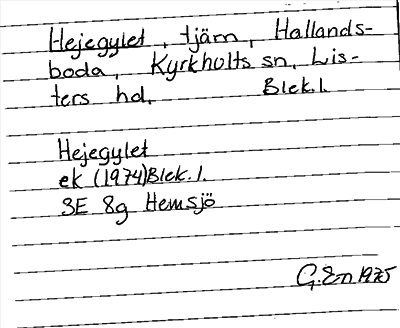 Hejegylet, tjärn, Hallands-
boda, Kyrkhults sn, Lis-
ters hd, Blek.l.
Hejegylet
ek (1974) Blek.l.
3E 8g Hemsjö
G. En 1975